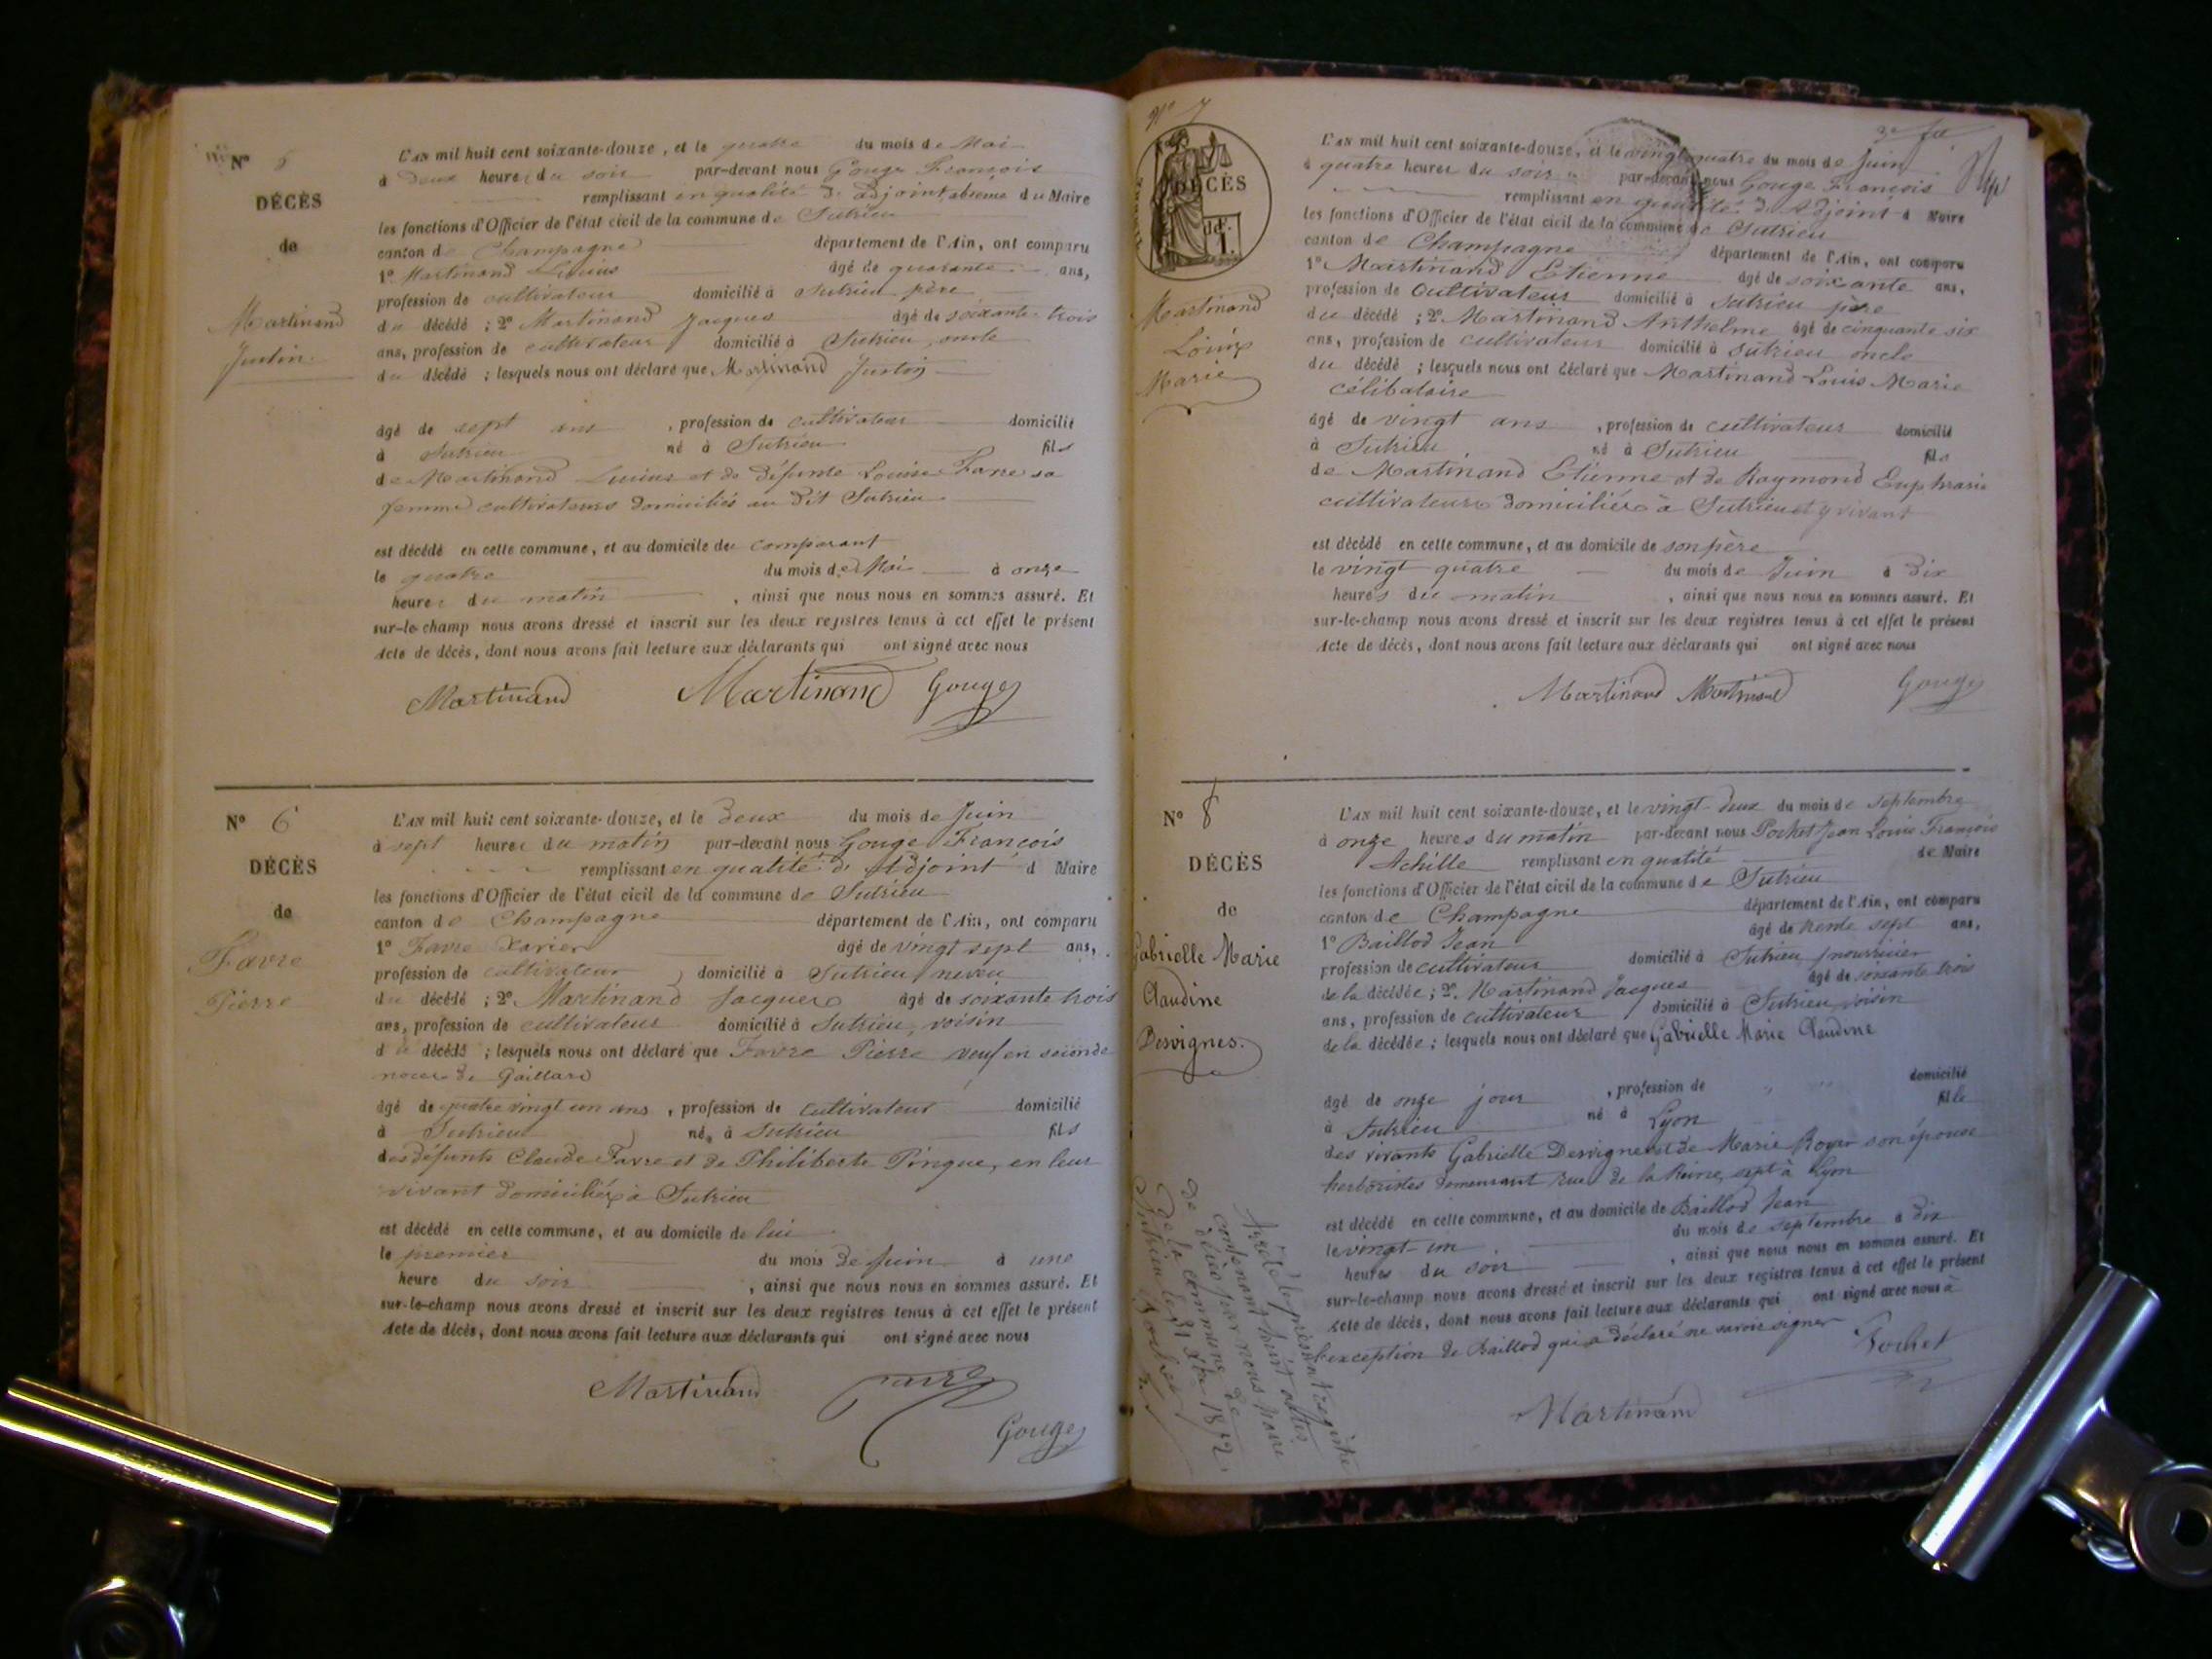 N° 5
DÉCÈS
de
Martinand
Justin
L'AN mil huit cent soixante-douze, et le quatre du mois de Mai
à deux heures du soir par-devant nous Gouge François
remplissant en qualité d'adjoint, absence du Maire
les fonctions d'Officier de l'état civil de la commune de Sutrieu
canton de Champagne département de l'Ain, ont comparu
1° Martinand Lucius âgé de quarante ans,
profession de cultivateur domicilié à Sutrieu père
du décédé ; 2° Martinand Jacques âgé de soixante-trois
ans, profession de cultivateur domicilié à Sutrieu, oncle
du décédé ; lesquels nous ont déclaré que Martinand Justin
âgé de sept ans , profession de cultivateur domicilié
à Sutrieu né à Sutrieu fils
de Martinand Lucius et de défunte Louise Favre sa
femme cultivateurs domiciliés au dit Sutrieu
est décédé en cette commune, et au domicile du comparant
le quatre du mois de Mai à onze
heures du matin , ainsi que nous nous en sommes assuré. Et
sur-le-champ nous avons dressé et inscrit sur les deux registres tenus à cet effet le présent
Acte de décès, dont nous avons fait lecture aux déclarants qui ont signé avec nous
Martinand Martinand Gouge
N° 6
DÉCÈS
de
Favre
Pierre
L'AN mil huit cent soixante-douze, et le deux du mois de Juin
à sept heures du matin par-devant nous Gouge François
remplissant en qualité d'Adjoint d Maire
les fonctions d'Officier de l'état civil de la commune de Sutrieu
canton de Champagne département de l'Ain, ont comparu
1° Favre Xavier âgé de vingt sept ans,
profession de cultivateur domicilié à Sutrieu neveu
du décédé ; 2° Martinand Jacques âgé de soixante trois
ans, profession de cultivateur domicilié à Sutrieu, voisin
du décédé ; lesquels nous ont déclaré que Favre Pierre veuf en seconde
noces de Gaillard
âgé de quatre vingt un ans , profession de cultivateur domicilié
à Sutrieu né à Sutrieu fils
des défunts Claude Favre et de Philiberte Pingue, en leur
vivant domiciliés à Sutrieu
est décédé en cette commune, et au domicile de lui
le premier du mois de Juin à une
heure du soir , ainsi que nous nous en sommes assuré. Et
sur-le-champ nous avons dressé et inscrit sur les deux registres tenus à cet effet le présent
Acte de décès, dont nous avons fait lecture aux déclarants qui ont signé avec nous
Martinand Favre
Gouge
N° 7
DÉCÈS
Martinand
Louis
Marie
L'AN mil huit cent soixante-douze, et le vingt quatre du mois de Juin
à quatre heures du soir par-devant nous Gouge François
remplissant en qualité d'Adjoint d Maire
les fonctions d'Officier de l'état civil de la commune de Sutrieu
canton de Champagne département de l'Ain, ont comparu
1° Martinand Etienne âgé de soixante ans,
profession de Cultivateur domicilié à Sutrieu père
du décédé ; 2° Martinand Anthelme âgé de cinquante six
ans, profession de cultivateur domicilié à Sutrieu oncle
du décédé ; lesquels nous ont déclaré que Martinand Louis Marie
célibataire
âgé de vingt ans , profession de cultivateur domicilié
à Sutrieu né à Sutrieu fils
de Martinand Etienne et de Raymond Euphrasie
cultivateurs domiciliés à Sutrieu et y vivant
est décédé en cette commune, et au domicile de son père
le vingt quatre du mois de Juin à dix
heures du matin , ainsi que nous nous en sommes assuré. Et
sur-le-champ nous avons dressé et inscrit sur les deux registres tenus à cet effet le présent
Acte de décès, dont nous avons fait lecture aux déclarants qui ont signé avec nous
Martinand Martinand Gouge
N° 8
DÉCÈS
de
Gabrielle Marie
Claudine
Desvignes.
L'AN mil huit cent soixante-douze, et le vingt-deux du mois de septembre
à onze heures du matin par-devant nous Pochet Jean Louis François
Achille remplissant en qualité de Maire
les fonctions d'Officier de l'état civil de la commune de Sutrieu
canton de Champagne département de l'Ain, ont comparu
1° Baillod Jean âgé de trente sept ans,
profession de cultivateur domicilié à Sutrieu, nourricier
de la décédée ; 2° Martinand Jacques âgé de soixante trois
ans, profession de cultivateur domicilié à Sutrieu, voisin
de la décédée ; lesquels nous ont déclaré que Gabrielle Marie Claudine
âgé de onze jour , profession de domicilié
à Sutrieu né à Lyon fille
des vivants Gabrielle Desvignes et de Marie Royer son épouse
herboristes demeurant rue de la Reine, sept à Lyon
est décédé en cette commune, et au domicile de Baillod Jean
le vingt-un du mois de septembre à dix
heures du soir , ainsi que nous nous en sommes assuré. Et
sur-le-champ nous avons dressé et inscrit sur les deux registres tenus à cet effet le présent
Acte de décès, dont nous avons fait lecture aux déclarants qui ont signé avec nous à
l'exception de Baillod qui a déclaré ne savoir signer
Pochet
Martinand
Arrêté le présent registre
contenant huit actes
de décès par nous Maire
de la commune de
Sutrieu le 31 Xbre 1872.
Pochet